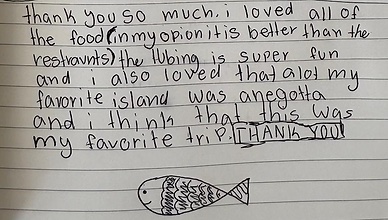 thank you so much. i loved all of
the food (in my opion it is better than the
restraunts) the tubing is super fun
and i also loved that alot my
favorite island was anegotta
and i think that this was
my favorite trip. THANK YOU!